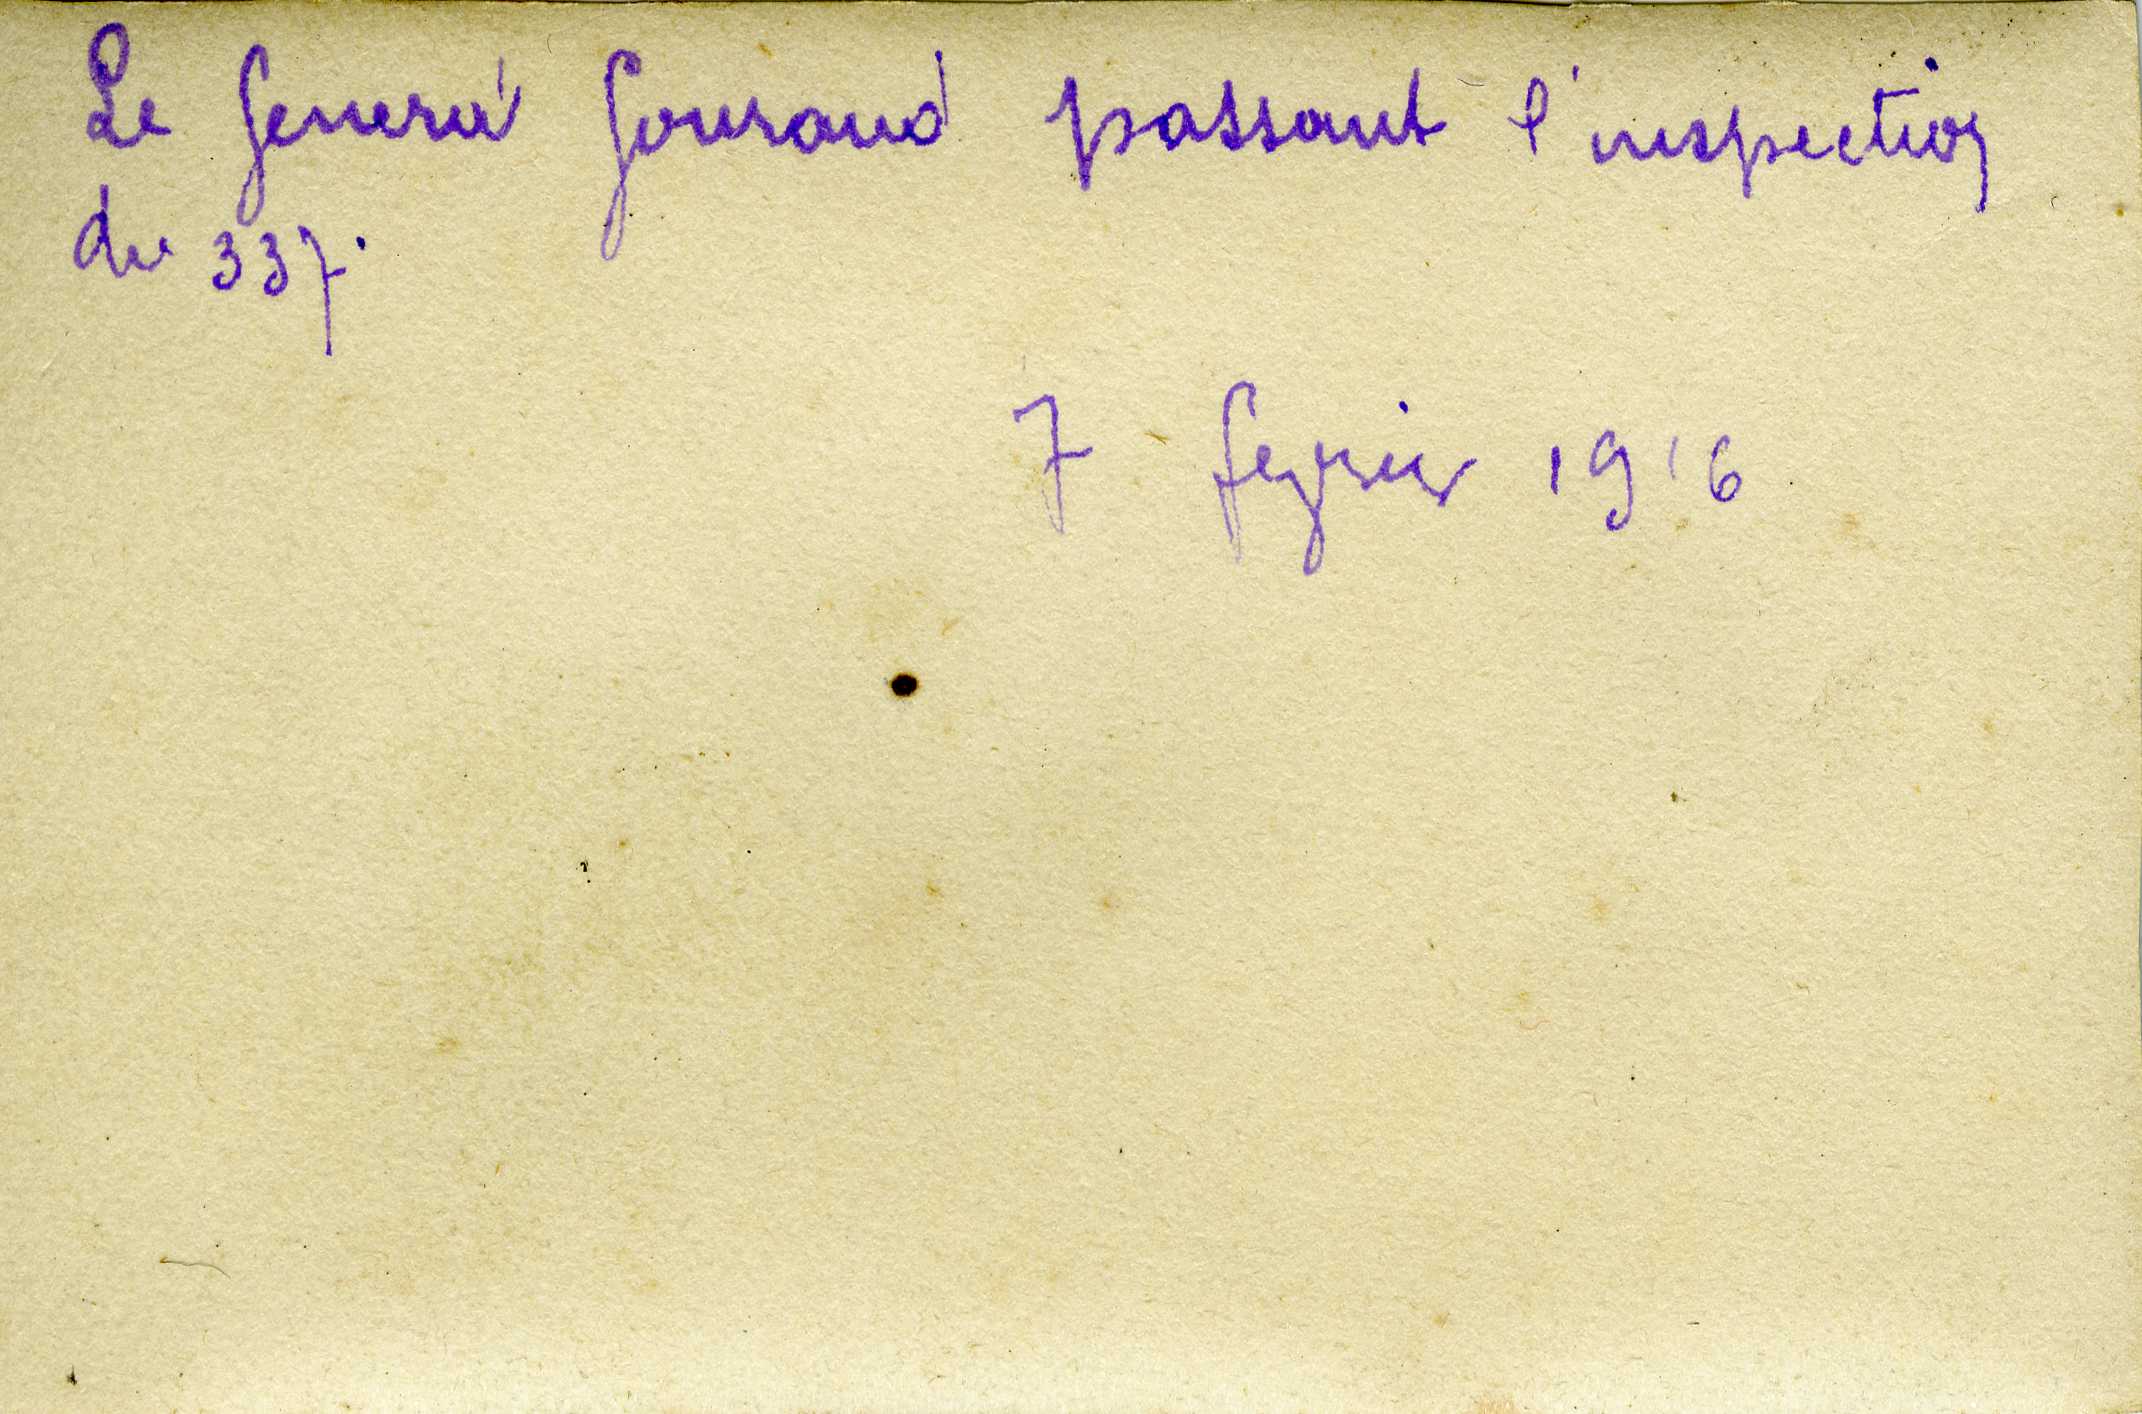 Le General Gouraud passant l'inspection
du 337.
7 fevrier 1916